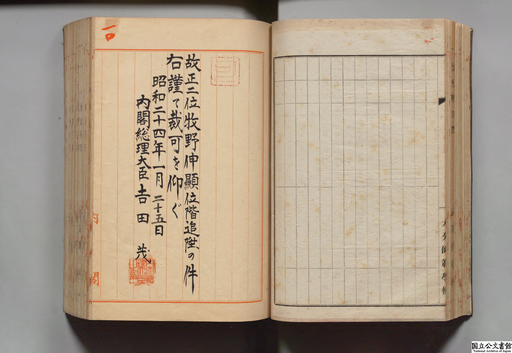 故正二位牧野伸顯位階追陞の件
右謹て裁可を仰ぐ
昭和二十四年一月二十五日
内閣総理大臣吉田茂
内閣
国立公文書館
National Archives of Japan